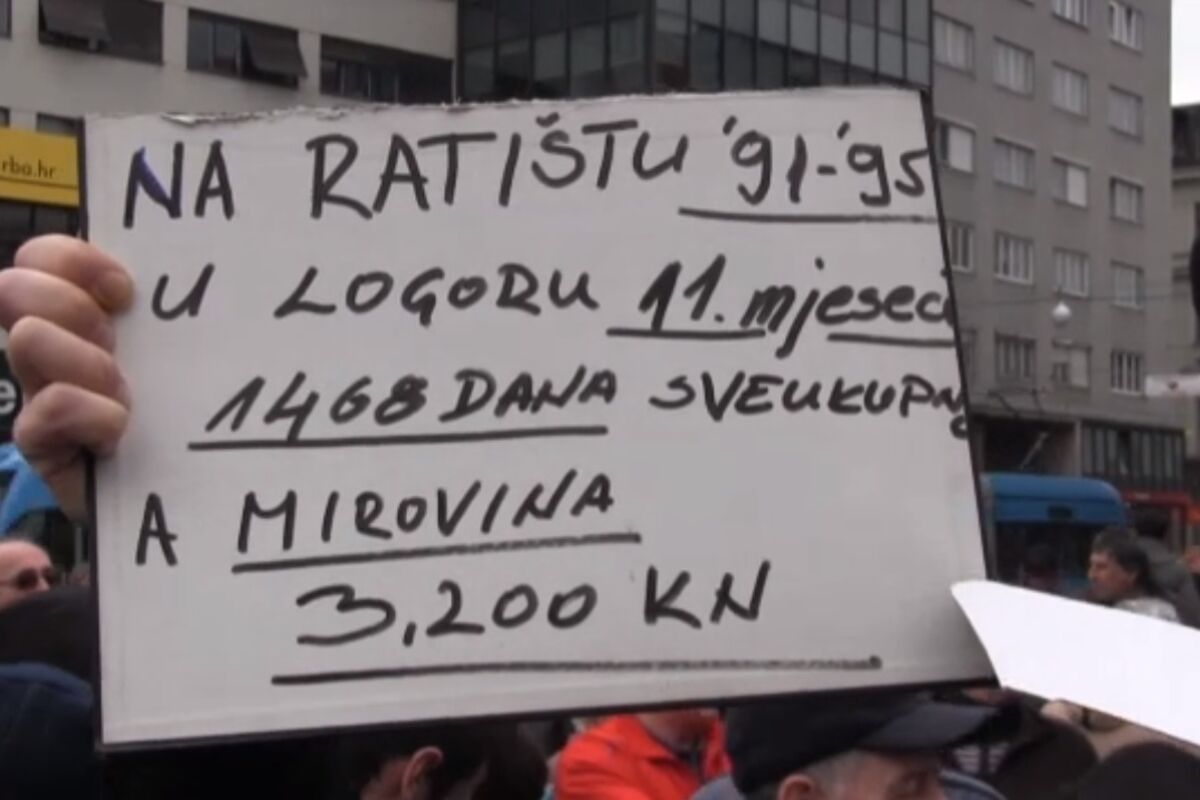 rba.hr
NA RATIŠTU '91-'95
U LOGORU 11. mjeseci
1468 DANA SVEUKUPNO
A MIROVINA
3,200 KN